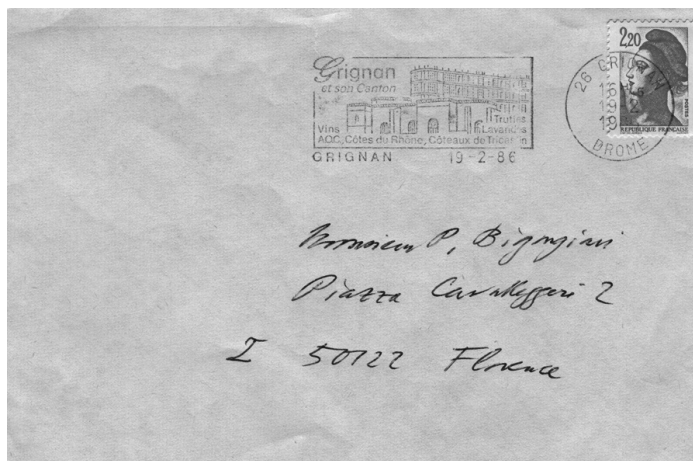 Grignan
et son Canton
Truffes
Vins Lavandes
AOC, Côtes du Rhône, Côteaux de Tricastin
GRIGNAN 19-2-86
2,20
REPUBLIQUE FRANÇAISE
26 GRIGNAN
DROME
Monsieur P. Bigongiari
Piazza Cavalleggeri 2
I 50122 Florence